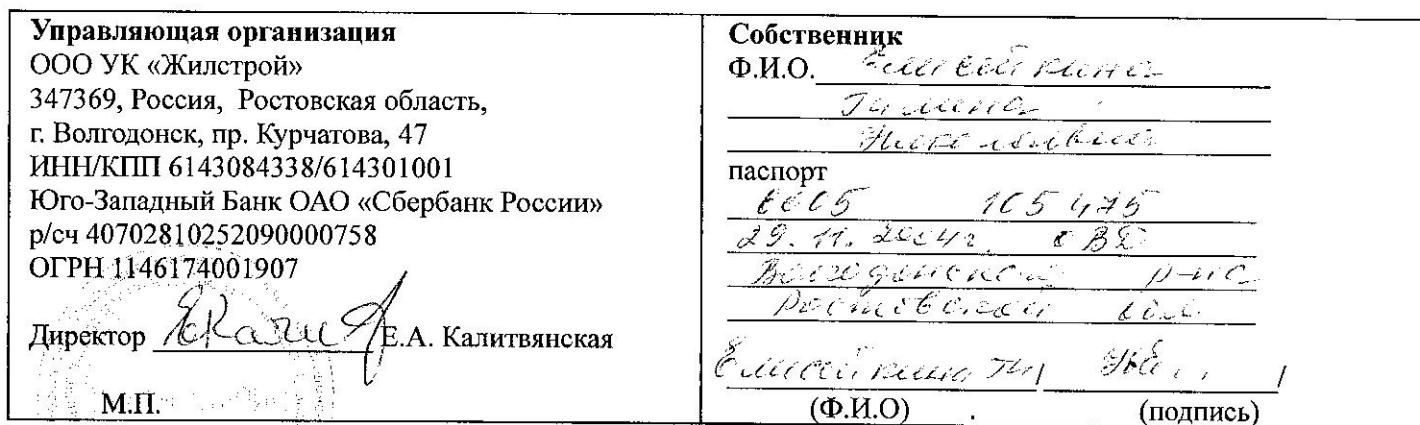 Управляющая организация
ООО УК «Жилстрой»
347369, Россия, Ростовская область,
г. Волгодонск, пр. Курчатова, 47
ИНН/КПП 6143084338/614301001
Юго-Западный Банк ОАО «Сбербанк России»
р/сч 40702810252090000758
ОГРН 1146174001907
Директор Е.А. Калитвянская
М.П.
Собственник
Ф.И.О. Елисейкина
Николаевна
паспорт
105 475
29.11.2004г. ОВД
Волгодонского р-на
Ростовской обл.
Елисейкина
(Ф.И.О) (подпись)